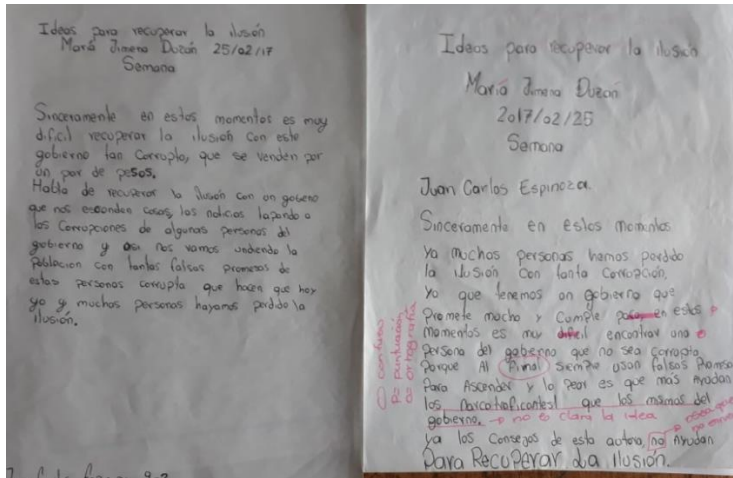 Ideas para recuperar la ilusión
María Jimena Duzán 25/02/17
Semana
Sinceramente en estos momentos es muy
dificil recuperar la ilusión con este
gobierno tan corrupto, que se venden por
un par de pesos.
Habla de recuperar la ilusión con un gobieno
que nos esconden cosas, las noticias tapando a
las corrupciones de algunas personas del
gobierno y asi nos vamos undiendo la
poblacion con tantas falsas promesas de
estas personas corrupta que hacen que hoy
yo y muchas personas hayamos perdido la
ilusión.
Ideas para recuperar la ilusión
María Jimena Duzán
2017/02/25
Semana
Juan Carlos Espinoza.
Sinceramente en estos momentos
ya muchas personas hemos perdido
la ilusión con tanta corrupción.
Ya que tenemos un gobierno que
Promete mucho y cumple poco, en estos P
momentos es muy dificil encontrar una o
persona del gobierno que no sea corrupta
Porque Al final siempre usan falsas Promsas
Para Ascender y lo peor es que más Ayudan
los narcotraficantes que los mismos del
gobierno. → no es clara la idea
ya los consejos de esta autora, no Ayudan
Para Recuperar La ilusión.
confuso
P= puntuación
o= ortografía